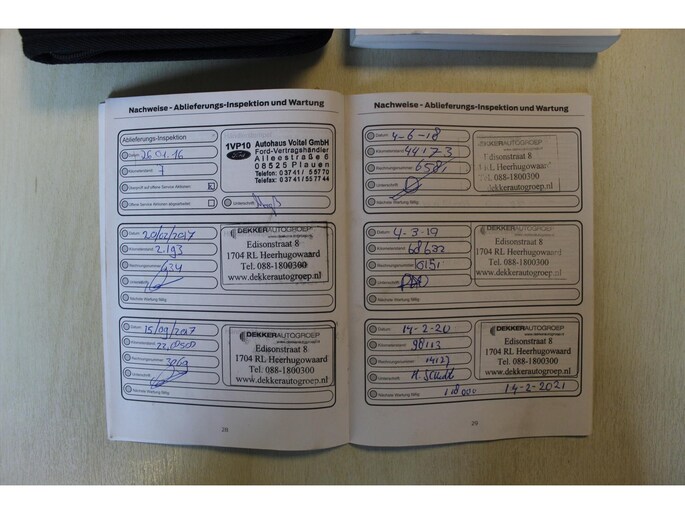 Nachweise - Ablieferungs-Inspektion und Wartung
Ablieferungs-Inspektion
Datum 26.01.16
Kilometerstand 7
Offene Service Aktionen abgearbeitet
Unterschrift
1VP10 Autohaus Voitel GmbH
Ford-Vertragshändler
Alleestraße 6
08525 Plauen
Telefon: 0 37 41 / 5 57 70
Telefax: 0 37 41 / 55 77 44
Datum 20/02/2017
Kilometerstand 2.193
Rechnungsnummer 634
Unterschrift
Nächste Wartung fällig
DEKKERAUTOGROEP
Edisonstraat 8
1704 RL Heerhugowaard
Tel. 088-1800300
www.dekkerautogroep.nl
Datum 15/09/2017
Kilometerstand
Rechnungsnummer 3069
Unterschrift
Nächste Wartung fällig
DEKKERAUTOGROEP
Edisonstraat 8
1704 RL Heerhugowaard
Tel. 088-1800300
www.dekkerautogroep.nl
28
Nachweise - Ablieferungs-Inspektion und Wartung
Datum 4-6-18
Kilometerstand 44173
Rechnungsnummer 6581
Unterschrift
Nächste Wartung fällig
DEKKERAUTOGROEP
Edisonstraat 8
1704 RL Heerhugowaard
Tel. 088-1800300
www.dekkerautogroep.nl
Datum 4-3-19
Kilometerstand 68632
Rechnungsnummer 10151
Unterschrift
Nächste Wartung fällig
DEKKERAUTOGROEP
Edisonstraat 8
1704 RL Heerhugowaard
Tel. 088-1800300
www.dekkerautogroep.nl
Datum 14-2-20
Kilometerstand 98113
Rechnungsnummer 14127
Unterschrift
Nächste Wartung fällig 118000 14-2-2021
DEKKERAUTOGROEP
Edisonstraat 8
1704 RL Heerhugowaard
Tel. 088-1800300
www.dekkerautogroep.nl
29